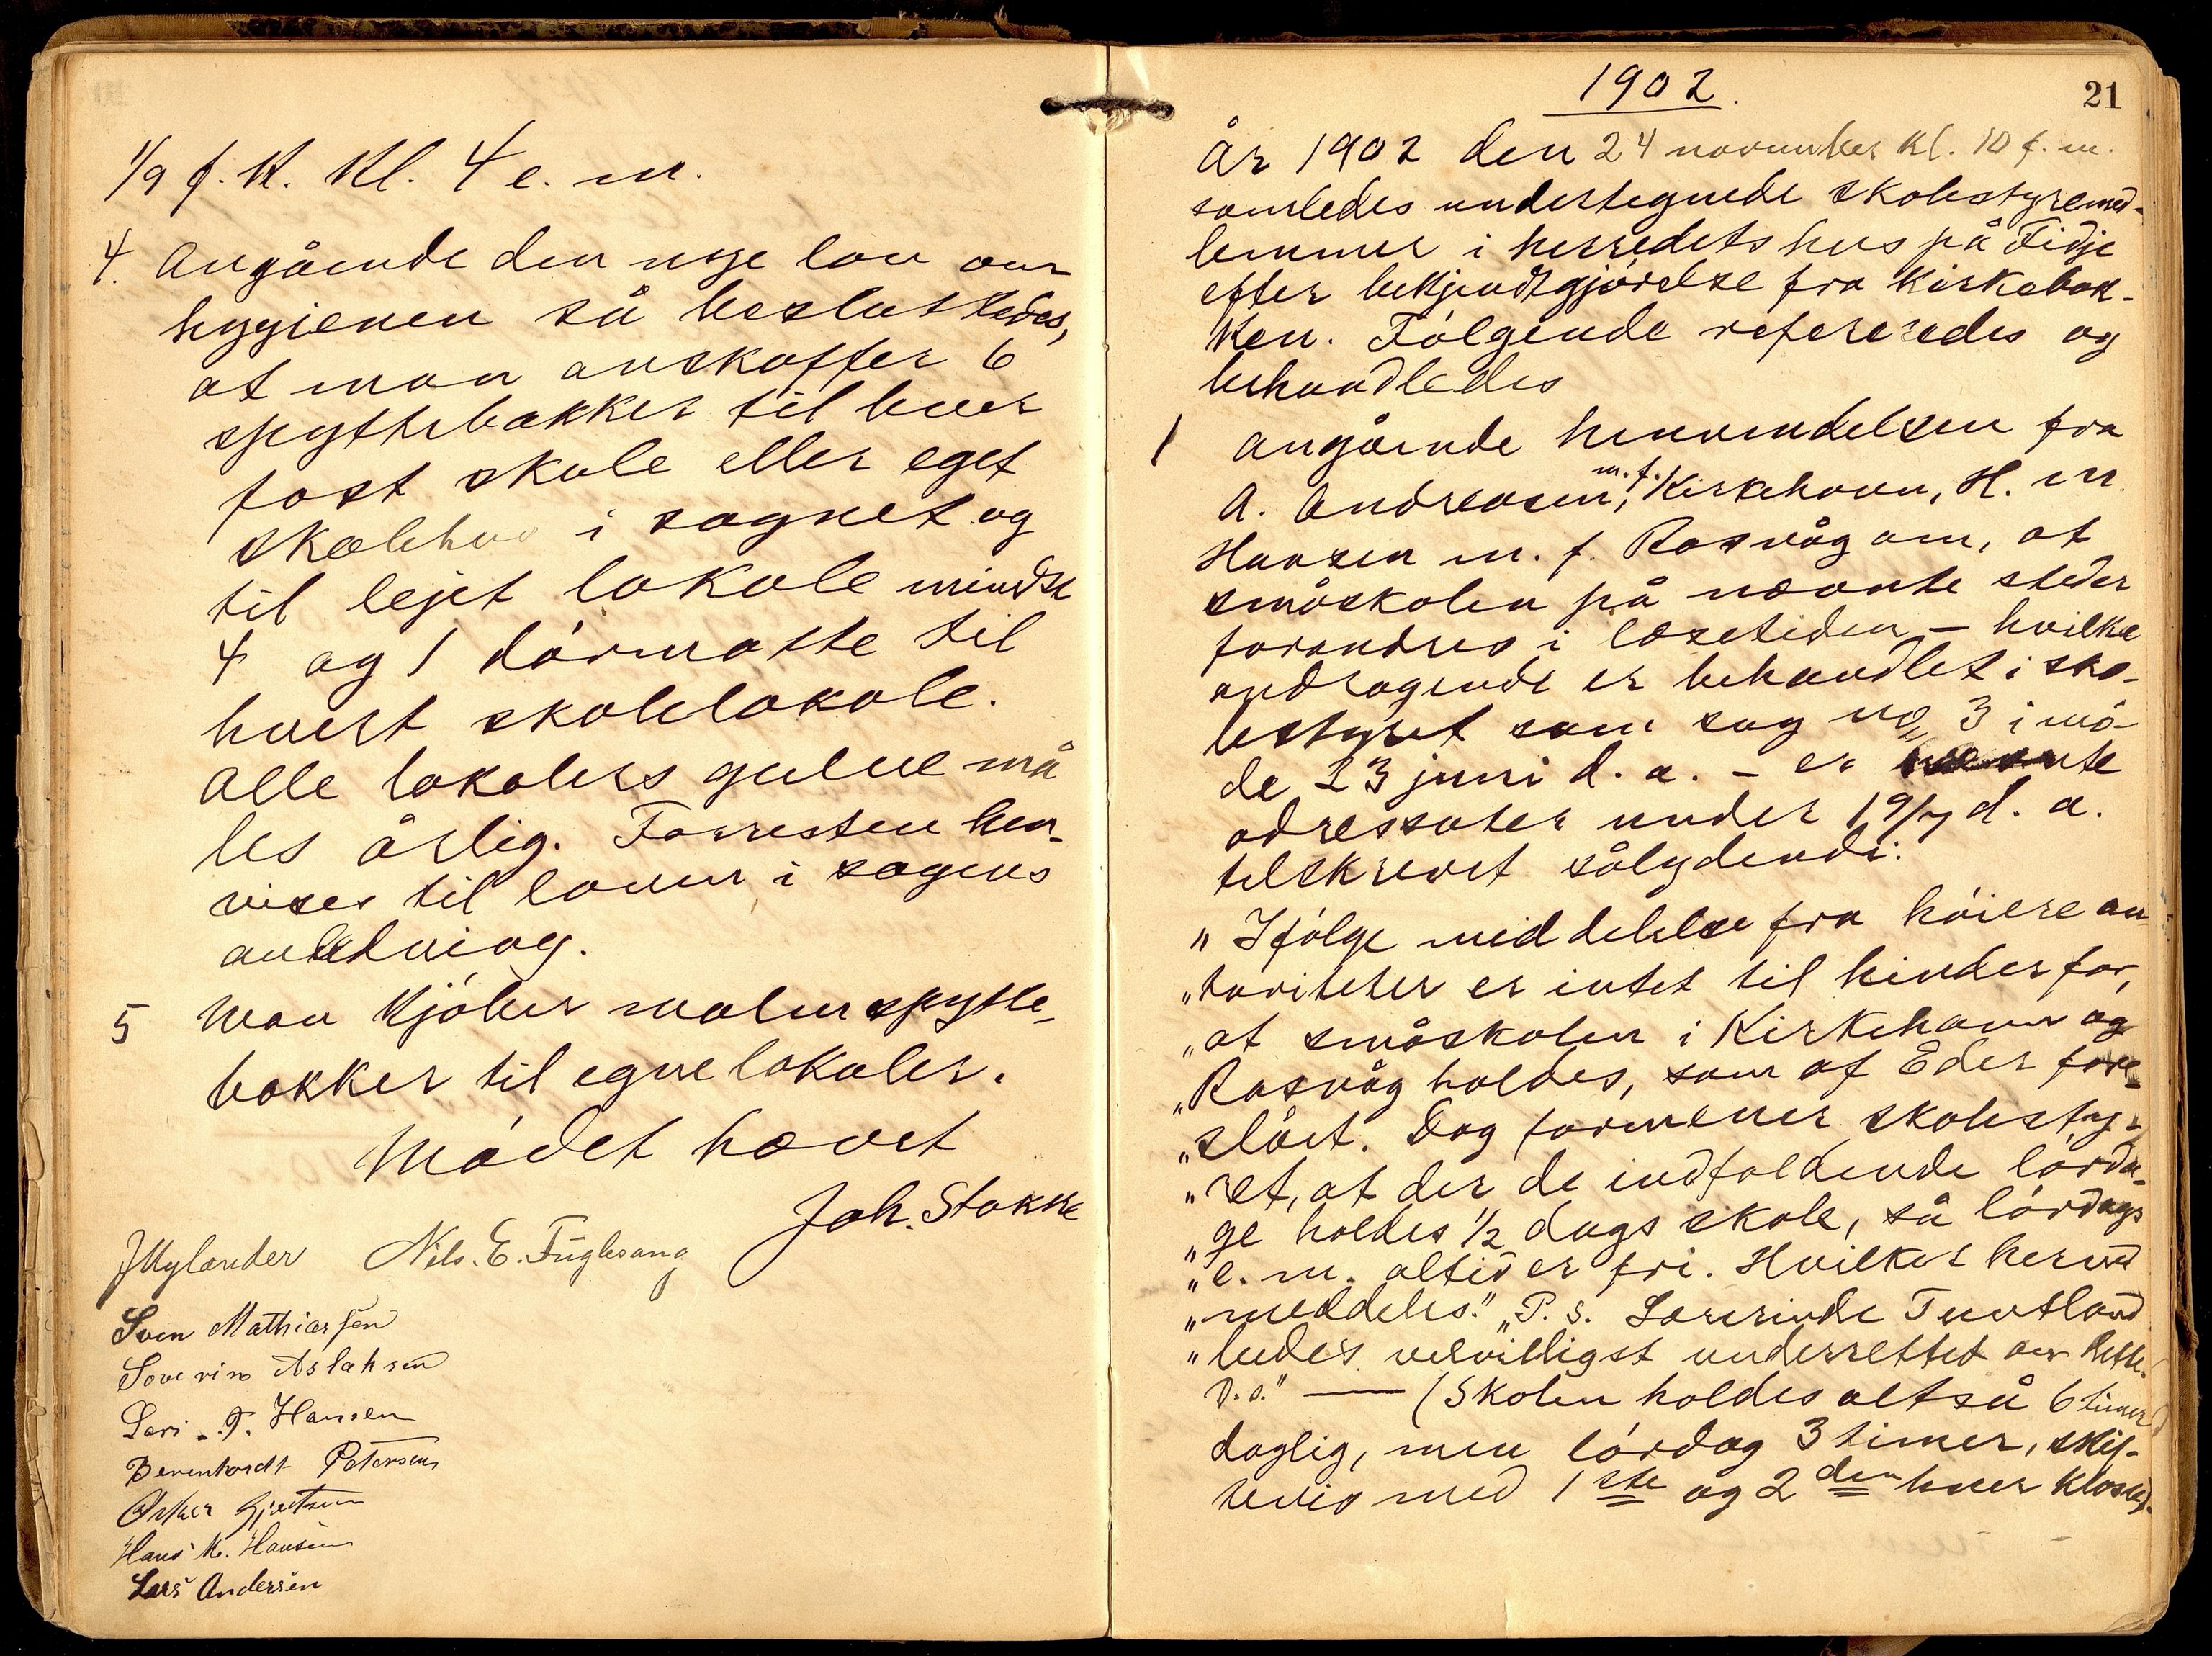 1/9 f. k. Kl. 4 e. m.
4. Angående den nye lov om
hygienen så besluttedes,
at man anskaffer 6
spyttebakker til hver
fast skole eller eget
skolehus i sognet og
til lejet lokale mindst
4 og 1 dörmatte til
hvert skolelokale.
Alle lokalers gulve må
les årlig. Forresten hen-
vises til loven i sagens
anledning.
5 Man kjöber malm spytte-
bakker til egne lokaler.
Mödet hævet
Joh. Stakke
J Mylander Nils. E. Fuglesang
Sven Mathiassen
Soverin Aslaksen
Lars. T. Hansen
Berenhardt Petersen
Osker Gjertsen
Hans M. Hansen
Lars Andersen
1902.
21
År 1902 den 24 november kl. 10 f. m.
samledes undertegnede skolestyremed-
lemmer i herredets hus på Fidje
efter bekjendtgjörelse fra kirkebak-
ken. Fölgende refereredes og
behandledes
1 angående henvendelsen fra
A. Andreasen, m. f. Kirkehavn, H. M
Hansen m. f. Rasvåg om, at
småskolen på nævnte steder
forandres i læsetiden – hvilke
andragende er behandlet i sko-
lestyret som sag no 3 i mö-
de 23 juni d. a. – er nævnte
adressater under 19/7 d. a.
telskrevet sålydende:
"Ifölge meddelelse fra höiere au-
"toriteter er intet til hinder for,
"at småskolen i Kirkehavn og
"Rasvåg holdes, som af Eder fore-
"slået. Dog formener skolesty-
"ret, at der de indfaldende lörda-
"ge holdes 1/2 dags skole, så lördags
"e. m. altid er fri. Hvilket herved
"meddeles." "P. S. Lærerinde Tuntland
"bedes velvilligst underrettet om dette.
D. s." — (Skolen holdes altså 6 timer
daglig, men lördag 3 timer, skif-
tevis med 1ste og 2den hver klasse).